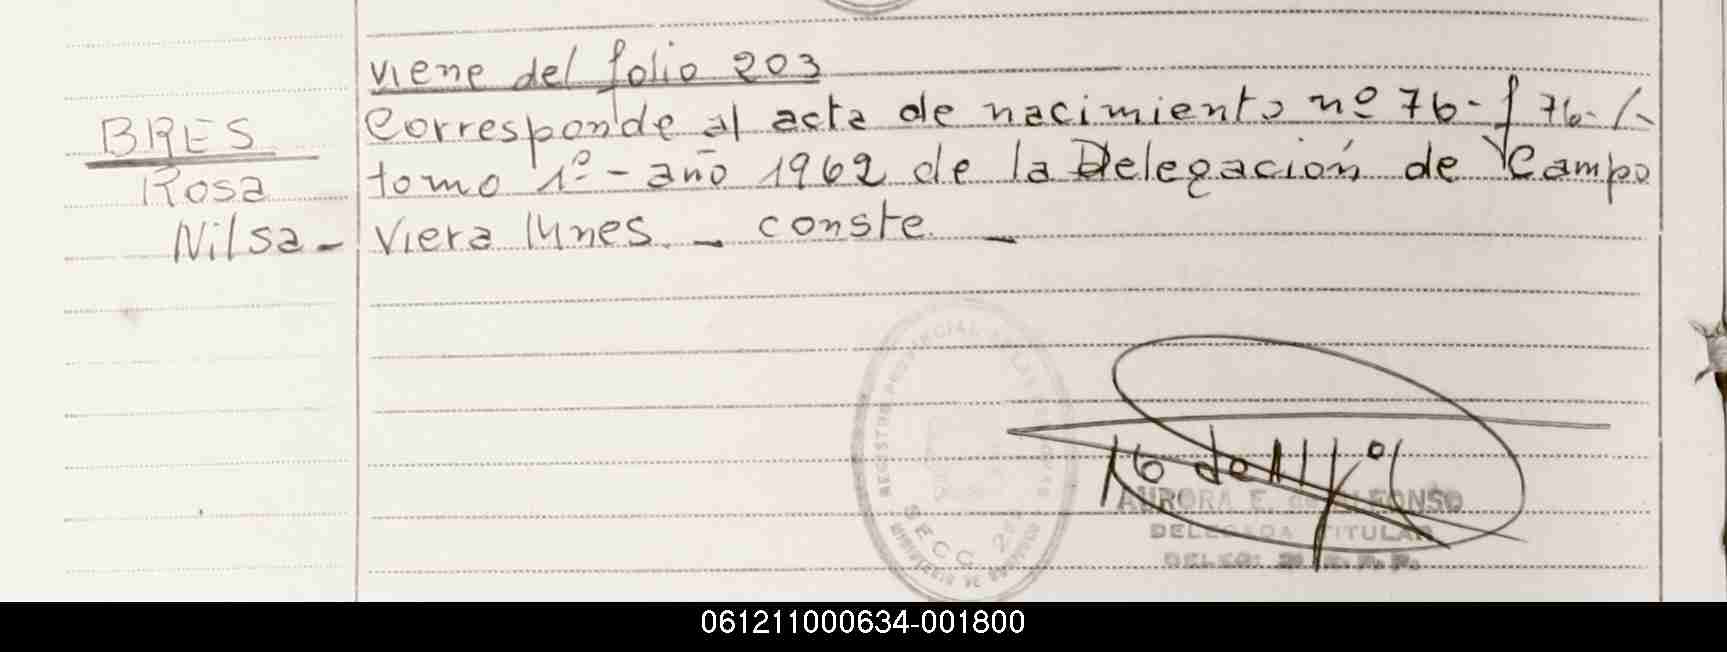 viene del folio 203
BRES
Rosa
Nilsa -
Corresponde al acta de nacimiento nº 76 - f 76 - /.
tomo 1º - año 1962 de la Delegación de Campo
Viera lunes. - conste. -
REGISTRO PROVINCIAL DE LAS PERSONAS
SECC.
MINISTERIO DE GOBIERNO
AURORA E. de ALFONSO
DELEGADA TITULAR
061211000634-001800